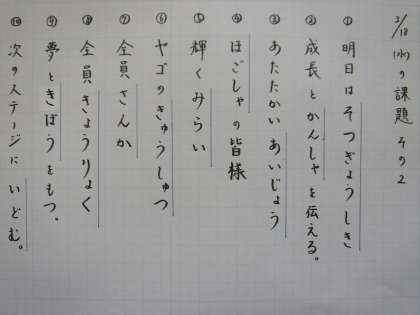 3/18 (水)の課題 その2
① 明日はそつぎょうしき
② 成長とかんしゃを伝える。
③ あたたかいあいじょう
④ ほごしゃの皆様
⑤ 輝くみらい
⑥ ヤゴのきゅうしゅつ
⑦ 全員さんか
⑧ 全員きょうりょく
⑨ 夢ときぼうをもつ。
⑩ 次のステージにいどむ。